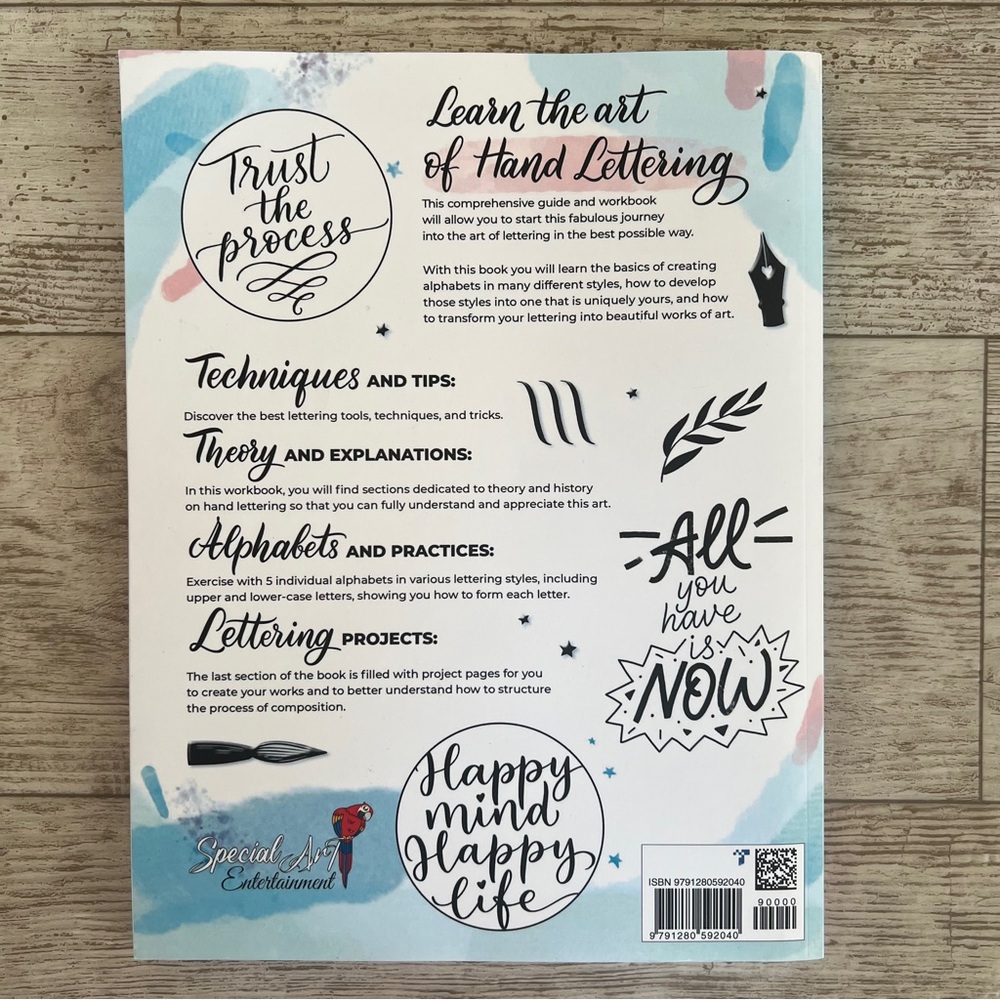 Trust
the
process
Learn the art
of Hand Lettering
This comprehensive guide and workbook
will allow you to start this fabulous journey
into the art of lettering in the best possible way.
With this book you will learn the basics of creating
alphabets in many different styles, how to develop
those styles into one that is uniquely yours, and how
to transform your lettering into beautiful works of art.
Techniques AND TIPS:
Discover the best lettering tools, techniques, and tricks.
Theory AND EXPLANATIONS:
In this workbook, you will find sections dedicated to theory and history
on hand lettering so that you can fully understand and appreciate this art.
Alphabets AND PRACTICES:
Exercise with 5 individual alphabets in various lettering styles, including
upper and lower-case letters, showing you how to form each letter.
Lettering PROJECTS:
The last section of the book is filled with project pages for you
to create your works and to better understand how to structure
the process of composition.
All
you
have
is
NOW
Happy
mind
Happy
life
Special Art
Entertainment
ISBN 9791280592040
90000
9 791280 592040